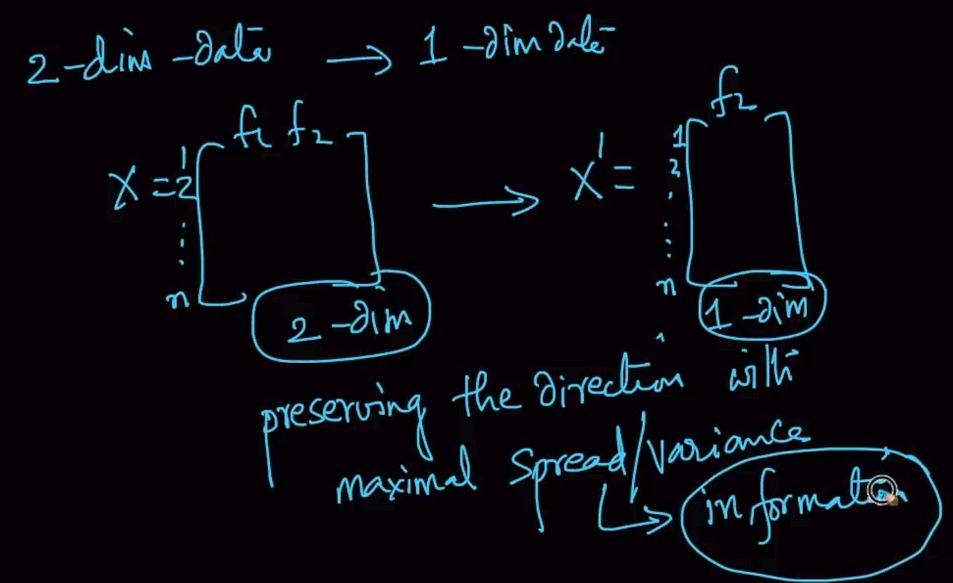 2-dim-data → 1-dim data
f1 f2
f2
X = 1
2
⋮
n
X' = 1
2
⋮
n
2-dim
1-dim
preserving the direction with
maximal spread/variance
↳ information